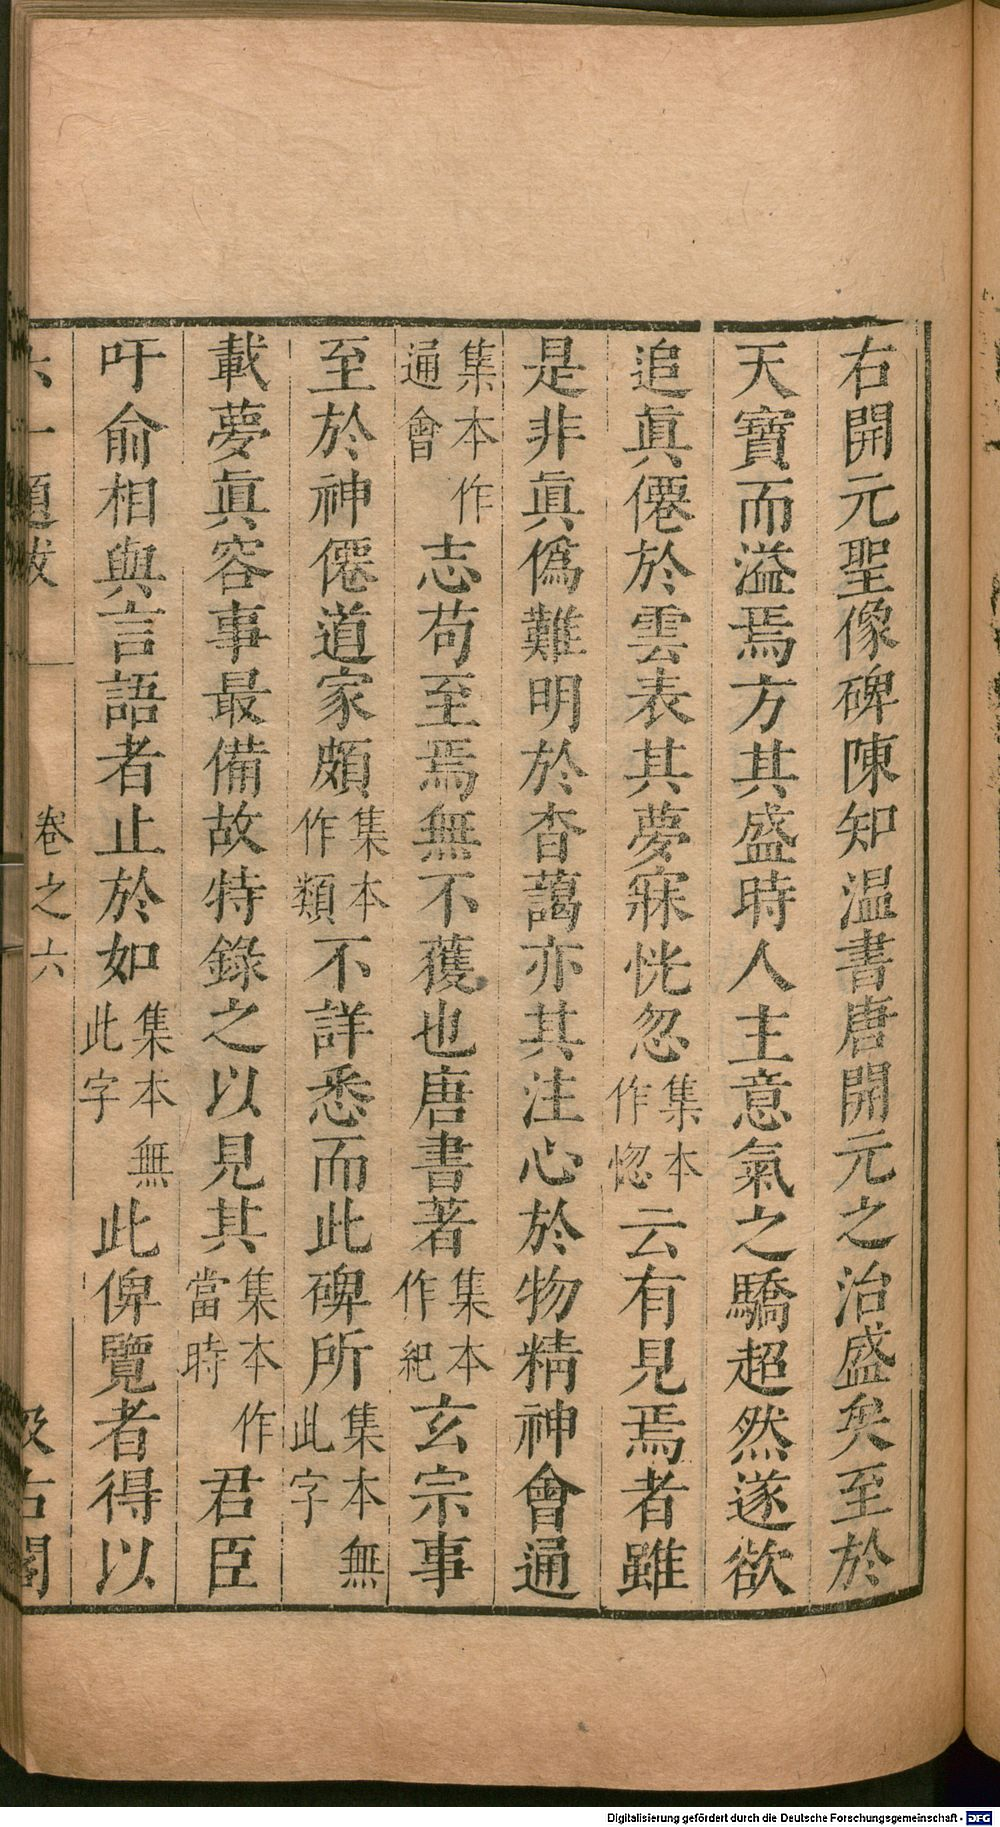 右開元聖像碑陳知温書唐開元之治盛矣至於
天寶而溢焉方其盛時人主意氣之驕超然遂欲
追眞僊於雲表其夢寐恍忽集本作惚云有見焉者雖
是非眞僞難明於杳藹亦其注心於物精神會通
集本作通會志苟至焉無不獲也唐書著集本作紀玄宗事
至於神僊道家頗集本作類不詳悉而此碑所集本無此字
載夢眞容事最備故特錄之以見其集本作當時君臣
吁俞相與言語者止於如集本無此字此俾覽者得以
六一題跋 卷之六 汲古閣
Digitalisierung gefördert durch die Deutsche Forschungsgemeinschaft - DFG